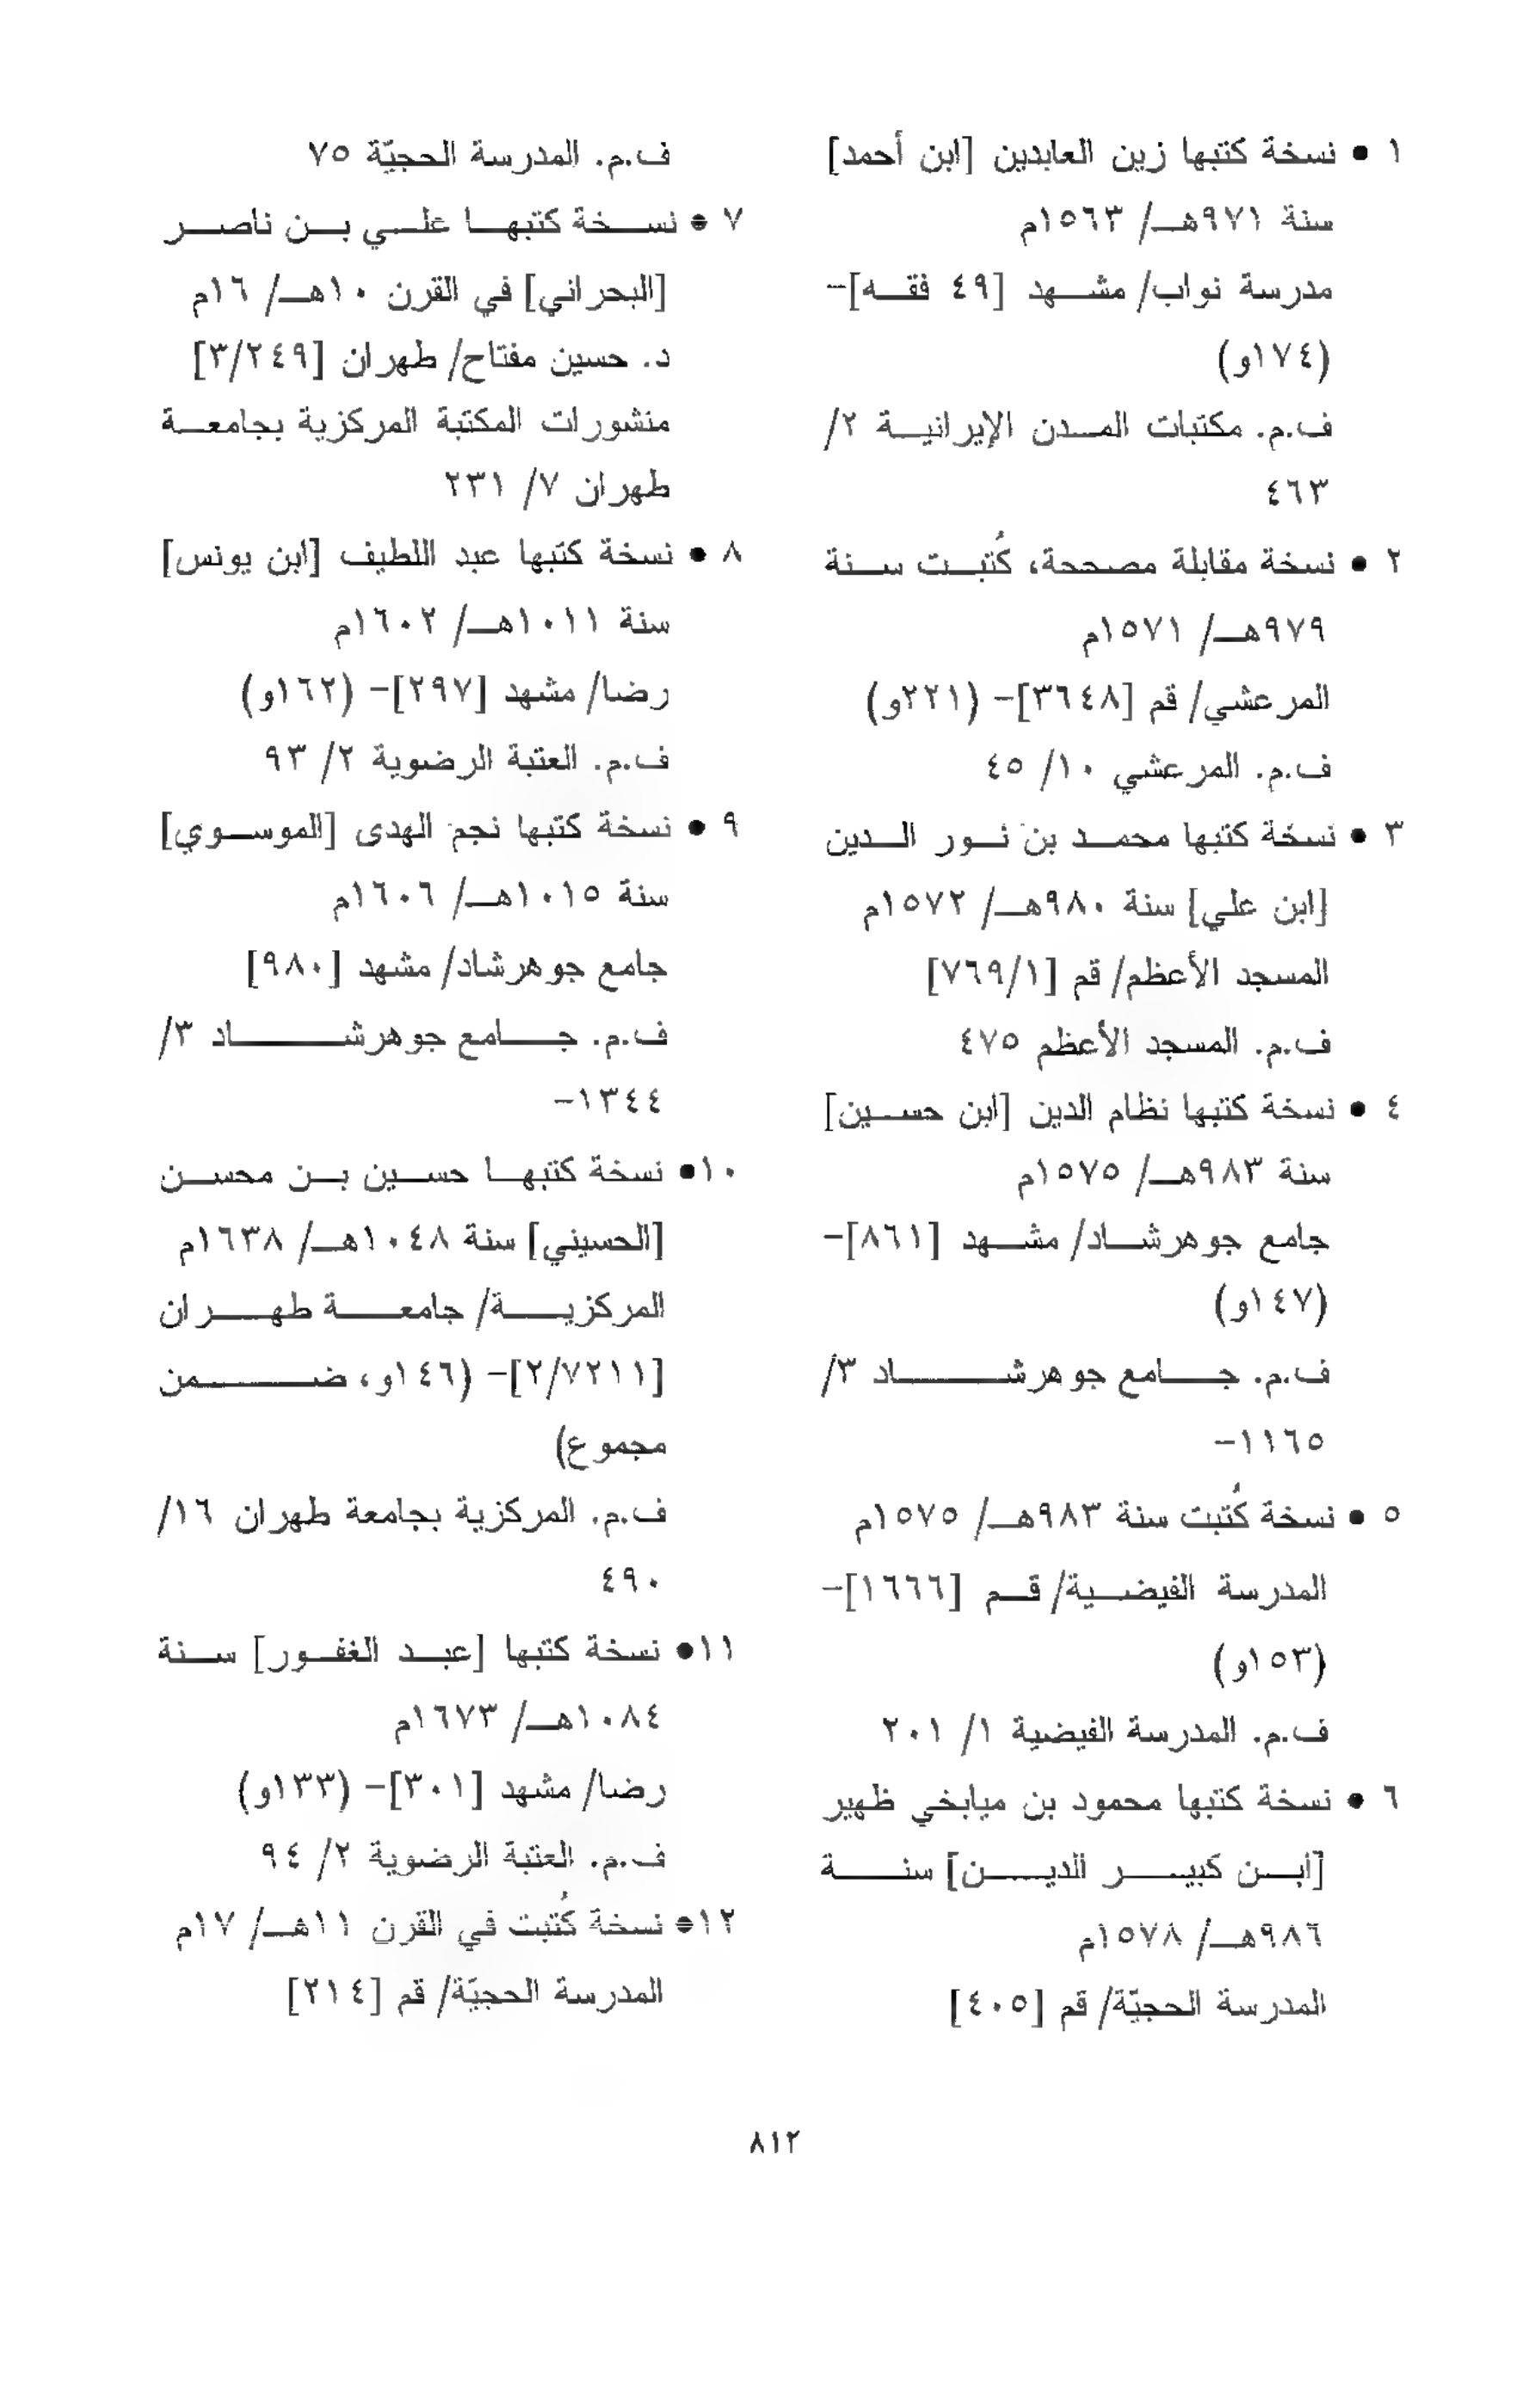 ١ • نسخة كتبها زين العابدين [ابن أحمد]
سنة ٩٧١هـ/ ١٥٦٣م
مدرسة نواب/ مشهد [٤٩ فقه]-
(١٧٤و)
ف.م. مكتبات المدن الإيرانية ٢/
٤٦٣
٢ • نسخة مقابلة مصححة، كُتبت سنة
٩٧٩هـ/ ١٥٧١م
المرعشي/ قم [٣٦٤٨]- (٢٢١و)
ف.م. المرعشي ١٠/ ٤٥
٣ • نسخة كتبها محمد بن نور الدين
[ابن علي] سنة ٩٨٠هـ/ ١٥٧٢م
المسجد الأعظم/ قم [٧٦٩/١]
ف.م. المسجد الأعظم ٤٧٥
٤ • نسخة كتبها نظام الدين [ابن حسين]
سنة ٩٨٣هـ/ ١٥٧٥م
جامع جوهرشاد/ مشهد [٨٦١]-
(١٤٧و)
ف.م. جامع جوهرشاد ٣/
١١٦٥-
٥ • نسخة كُتبت سنة ٩٨٣هـ/ ١٥٧٥م
المدرسة الفيضية/ قم [١٦٦٦]-
(١٥٣و)
ف.م. المدرسة الفيضية ١/ ٢٠١
٦ • نسخة كتبها محمود بن ميابخي ظهير
[ابن كبير الدين] سنة
٩٨٦هـ/ ١٥٧٨م
المدرسة الحجيّة/ قم [٤٠٥]
ف.م. المدرسة الحجيّة ٧٥
٧ • نسخة كتبها علي بن ناصر
[البحراني] في القرن ١٠هـ/ ١٦م
د. حسين مفتاح/ طهران [٣/٢٤٩]
منشورات المكتبة المركزية بجامعة
طهران ٧/ ٢٣١
٨ • نسخة كتبها عبد اللطيف [ابن يونس]
سنة ١٠١١هـ/ ١٦٠٢م
رضا/ مشهد [٢٩٧]- (١٦٢و)
ف.م. العتبة الرضوية ٢/ ٩٣
٩ • نسخة كتبها نجم الهدى [الموسوي]
سنة ١٠١٥هـ/ ١٦٠٦م
جامع جوهرشاد/ مشهد [٩٨٠]
ف.م. جامع جوهرشاد ٣/
١٣٤٤-
١٠• نسخة كتبها حسين بن محسن
[الحسيني] سنة ١٠٤٨هـ/ ١٦٣٨م
المركزية/ جامعة طهران
[٢/٧٢١١]- (١٤٦و، ضمن
مجموع)
ف.م. المركزية بجامعة طهران ١٦/
٤٩٠
١١• نسخة كتبها [عبد الغفور] سنة
١٠٨٤هـ/ ١٦٧٣م
رضا/ مشهد [٣٠١]- (١٣٣و)
ف.م. العتبة الرضوية ٢/ ٩٤
١٢• نسخة كُتبت في القرن ١١هـ/ ١٧م
المدرسة الحجيّة/ قم [٢١٤]
٨١٢